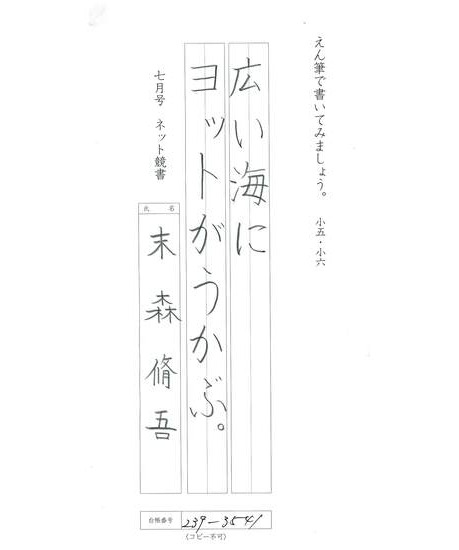 えん筆で書いてみましょう。 小五・小六
広い海に
ヨットがうかぶ。
七月号 ネット競書
氏名
末森脩吾
台帳番号 239-3541
(コピー不可)